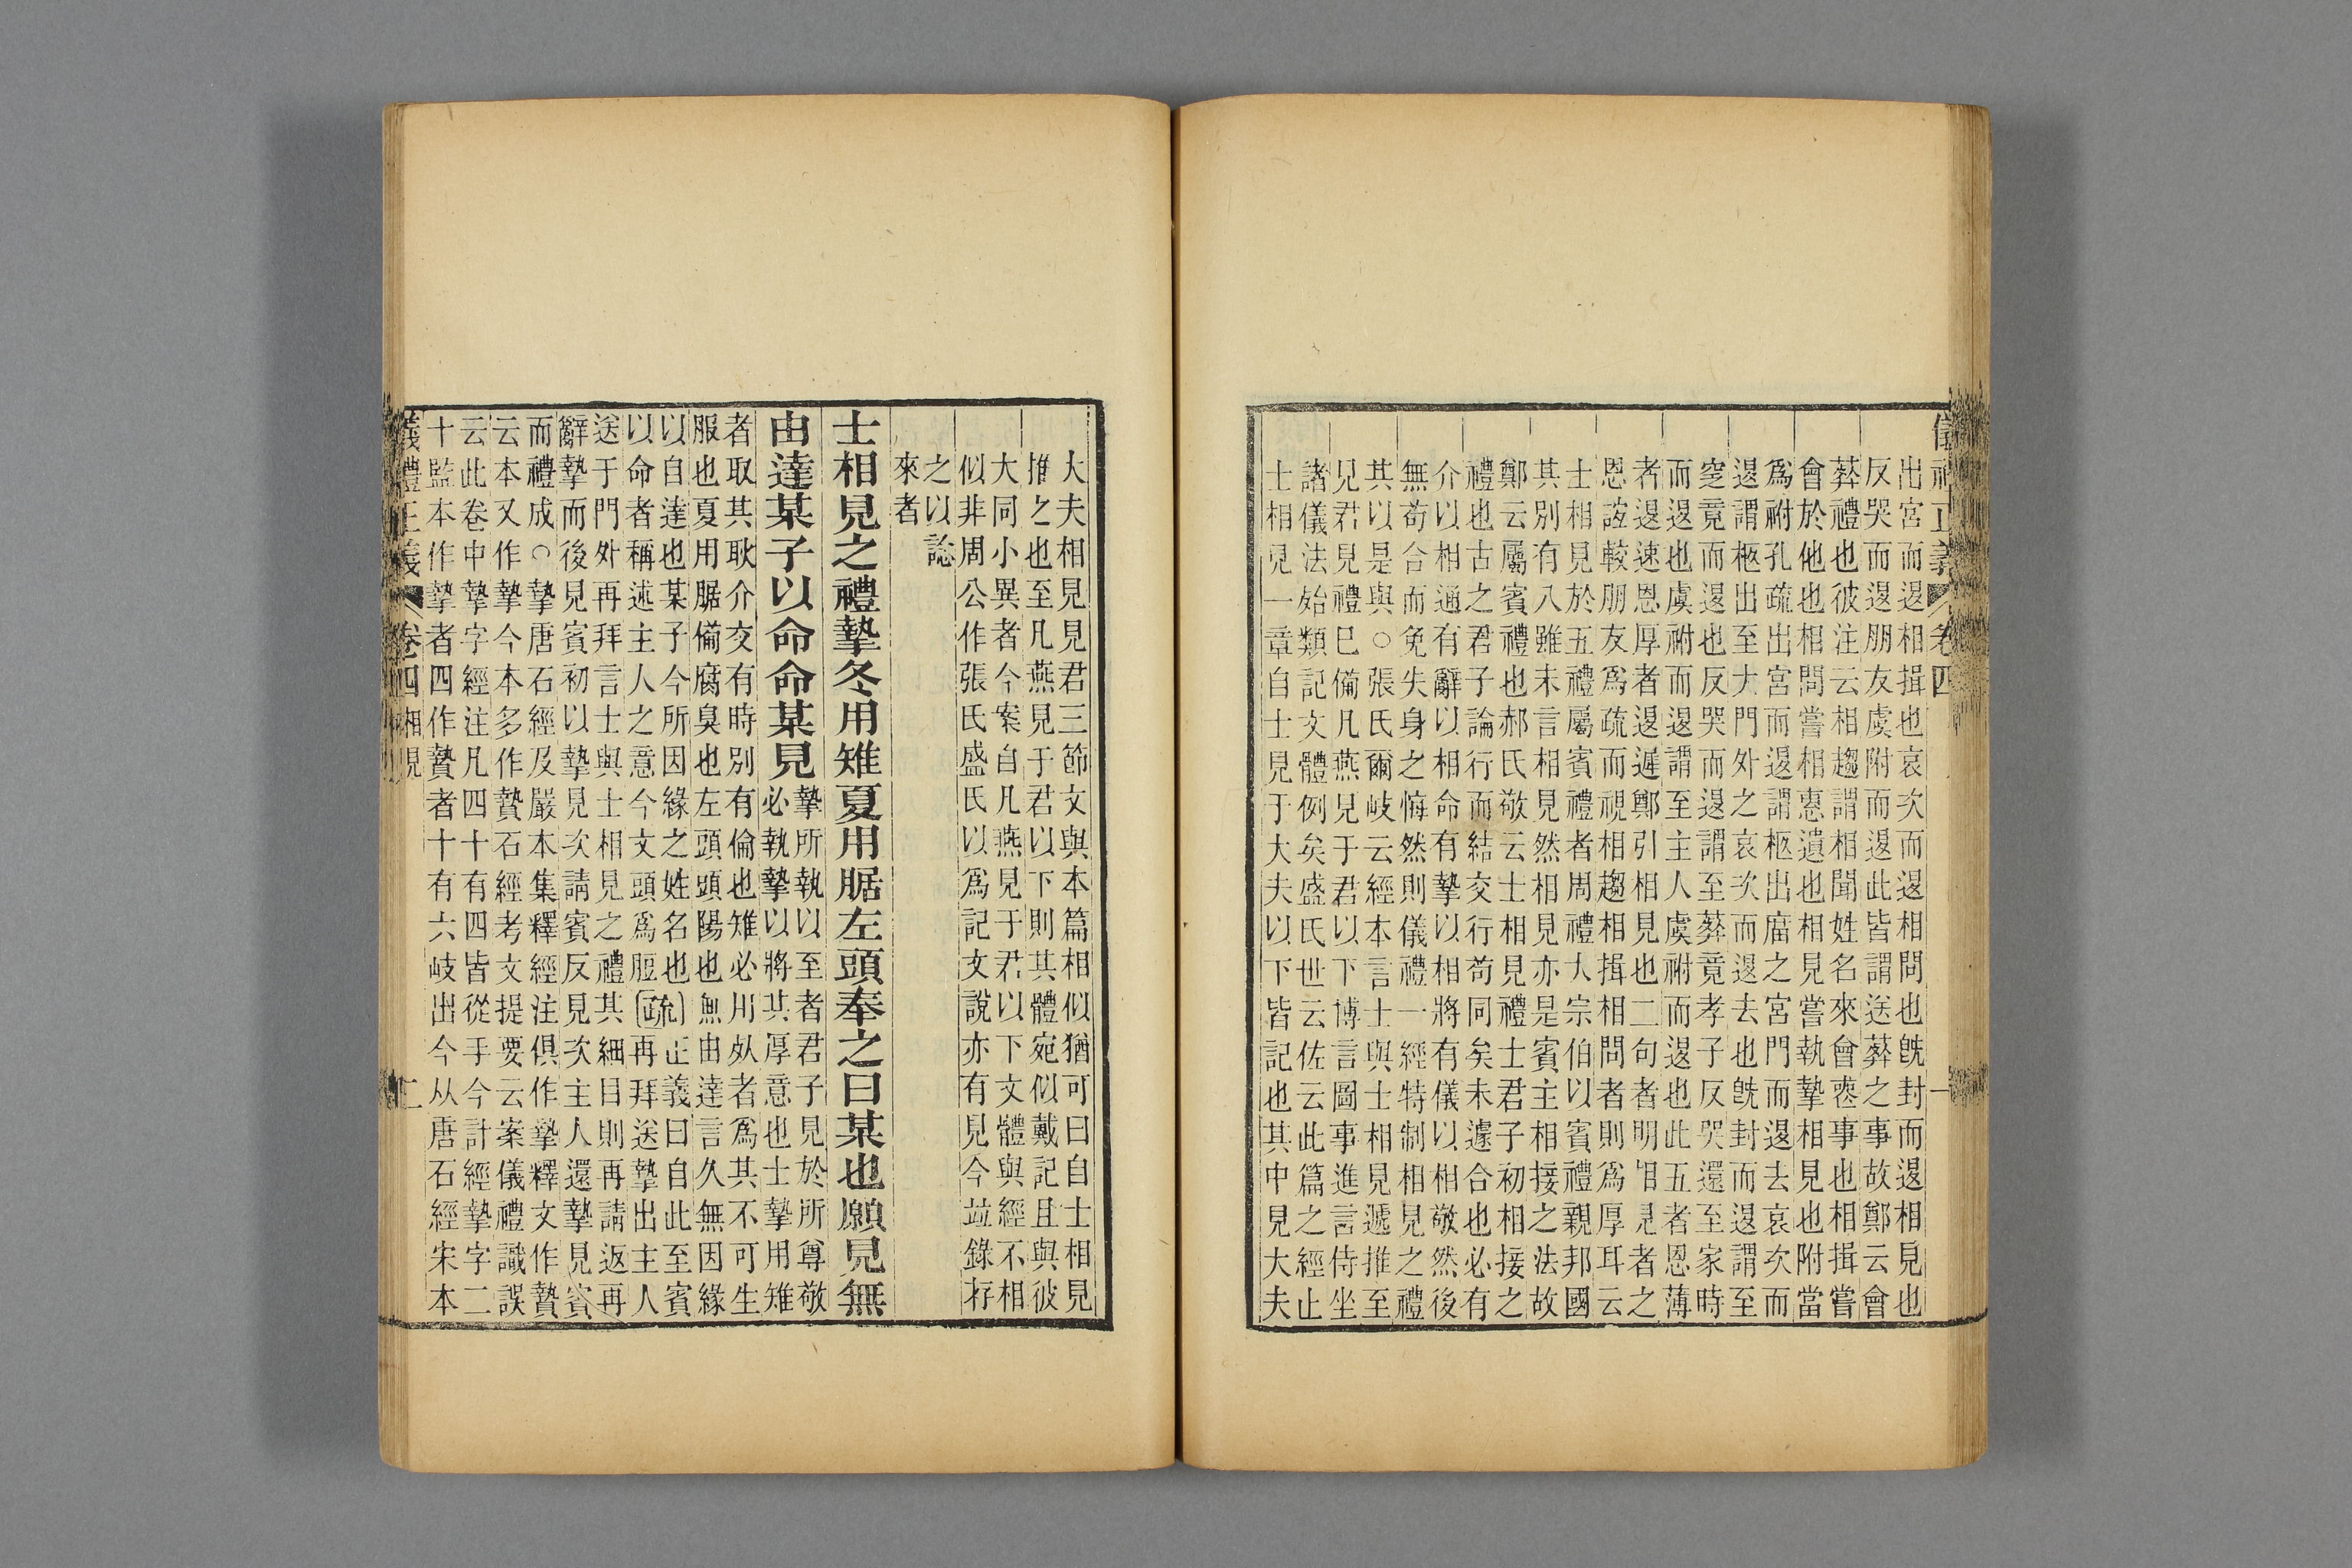 儀禮正義 卷四 一
出宮而退相揖也哀次而退相問也旣封而退相見也
反哭而退朋友虞附而退此皆謂送葬之事故鄭云會
葬禮也彼注云相趨謂相聞姓名來會喪事也相揖嘗
會於他也相問嘗相惠遺也相見嘗執摯相見也附當
爲祔孔疏出宮而退謂柩出庿之宮門而退去哀次而
退謂柩出至大門外之哀次而退去也旣封而退謂至
窆竟而退也反哭而退謂至葬竟孝子反哭還至家時
而退也虞祔而退謂至主人虞祔而退也此五者恩薄
者退速恩厚者退遲鄭引相見也二句者明相見者之
恩誼較朋友爲疏而視相趨相揖相問者則爲厚耳云
士相見於五禮屬賓禮者周禮大宗伯以賓禮親邦國
其別有八雖未言相見然相見亦是賓主相接之法故
鄭云屬賓禮也郝氏敬云士相見禮士君子初相接之
禮也古之君子論行而結交行苟同矣未遽合也必有
介以相通有辭以相命有摯以相將有儀以相敬然後
無苟合而免失身之悔然則儀禮一經特制相見之禮
其以是與○張氏爾岐云經本言士與士相見遞推至
見君見禮巳備凡燕見于君以下博言圖事進言侍坐
諸儀法始類記文體例矣盛氏世佐云此篇之經止
士相見一章自士見于大夫以下皆記也其中見大夫
大夫相見見君三節文與本篇相似猶可曰自士相見
推之也至凡燕見于君以下則其體宛似戴記且與彼
大同小異者今案自凡燕見于君以下文體與經不相
似非周公作張氏盛氏以爲記文說亦有見今竝錄存
之以諗
來者
士相見之禮摯冬用雉夏用腒左頭奉之曰某也願見無
由達某子以命命某見
摯所執以至者君子見於所尊敬
必執摯以將其厚意也士摯用雉
者取其耿介交有時別有倫也雉必用死者爲其不可生
服也夏用腒備腐臭也左頭頭陽也無由達言久無因緣
以自達也某子今所因緣之姓名也疏正義曰自此至賓
以命者稱述主人之意今文頭爲脰再拜送摯出主人
送于門外再拜言士與士相見之禮其細目則再請返再
辭摯而後見賓初以摯見次請賓反見次主人還摯見賓
而禮成○摯唐石經及嚴本集釋經注俱作摯釋文作贄
云本又作摯今本多作贄石經考文提要云案儀禮識誤
云此卷中摯字經注凡四十有四皆從手今計經摯字二
十監本作摯者四作贄者十有六岐出今从唐石經宋本
儀禮正義 卷四 相見 二